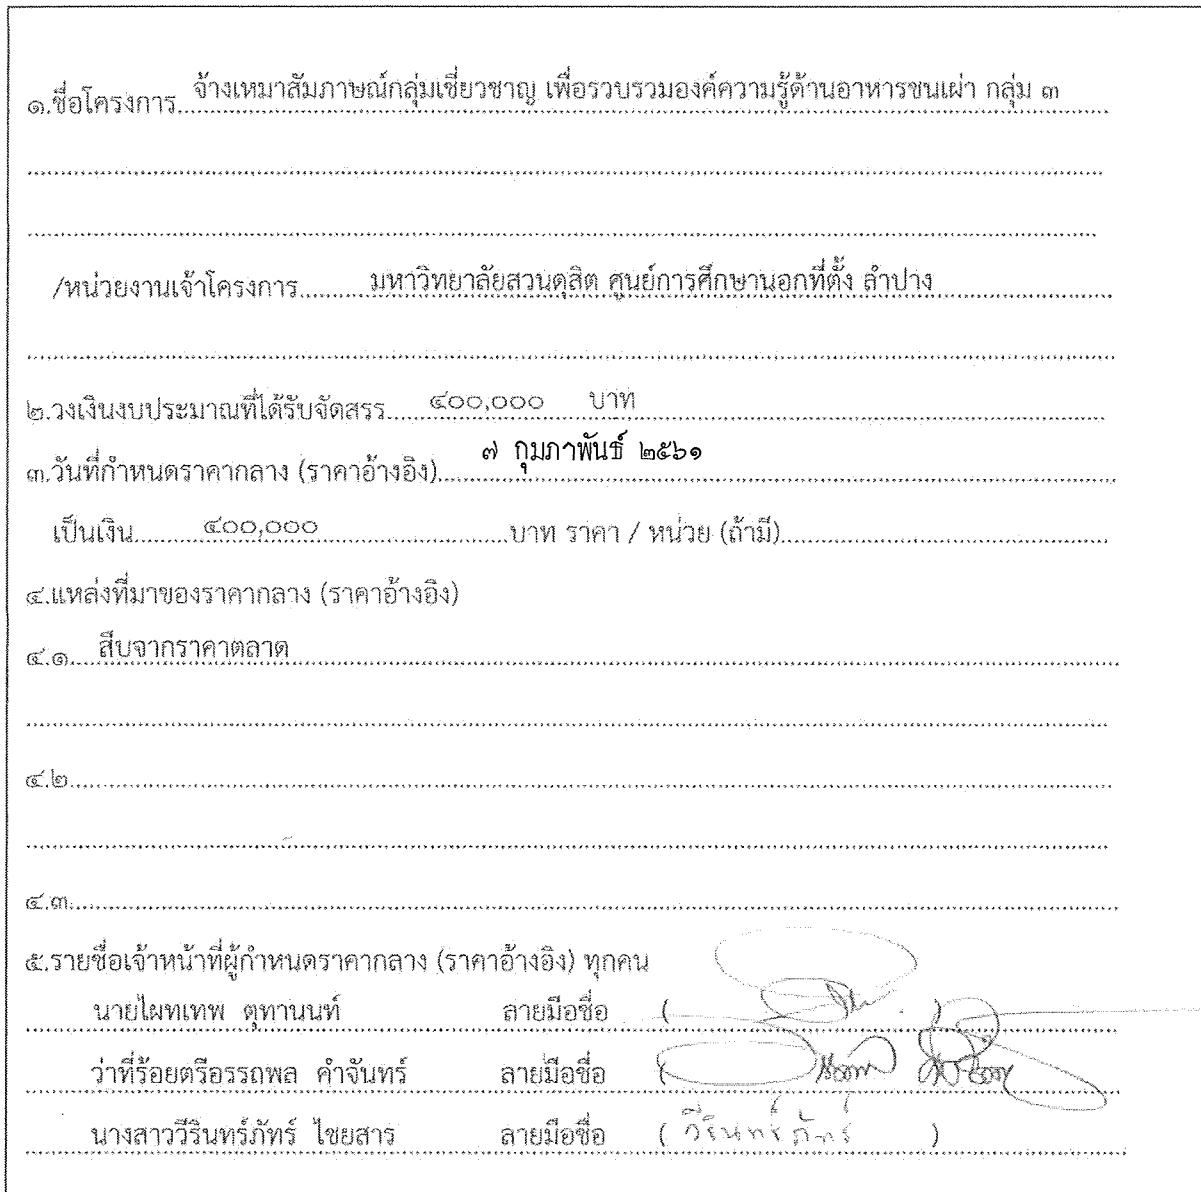 ๑.ชื่อโครงการ....จ้างเหมาสัมภาษณ์กลุ่มเชี่ยวชาญ เพื่อรวบรวมองค์ความรู้ด้านอาหารชนเผ่า กลุ่ม ๓
/หน่วยงานเจ้าโครงการ..........มหาวิทยาลัยสวนดุสิต ศูนย์การศึกษานอกที่ตั้ง ลำปาง
๒.วงเงินงบประมาณที่ได้รับจัดสรร......๔๐๐,๐๐๐ บาท
๓.วันที่กำหนดราคากลาง (ราคาอ้างอิง)......๗ กุมภาพันธ์ ๒๕๖๑
เป็นเงิน..........๔๐๐,๐๐๐..............................บาท ราคา / หน่วย (ถ้ามี)
๔.แหล่งที่มาของราคากลาง (ราคาอ้างอิง)
๔.๑....สืบจากราคาตลาด
๔.๒
๔.๓
๕.รายชื่อเจ้าหน้าที่ผู้กำหนดราคากลาง (ราคาอ้างอิง) ทุกคน
นายไผทเทพ ตุทานนท์ ลายมือชื่อ ( )
ว่าที่ร้อยตรีอรรถพล คำจันทร์ ลายมือชื่อ (
นางสาววีรินทร์ภัทร์ ไชยสาร ลายมือชื่อ ( วีรินทร์ภัทร์ )